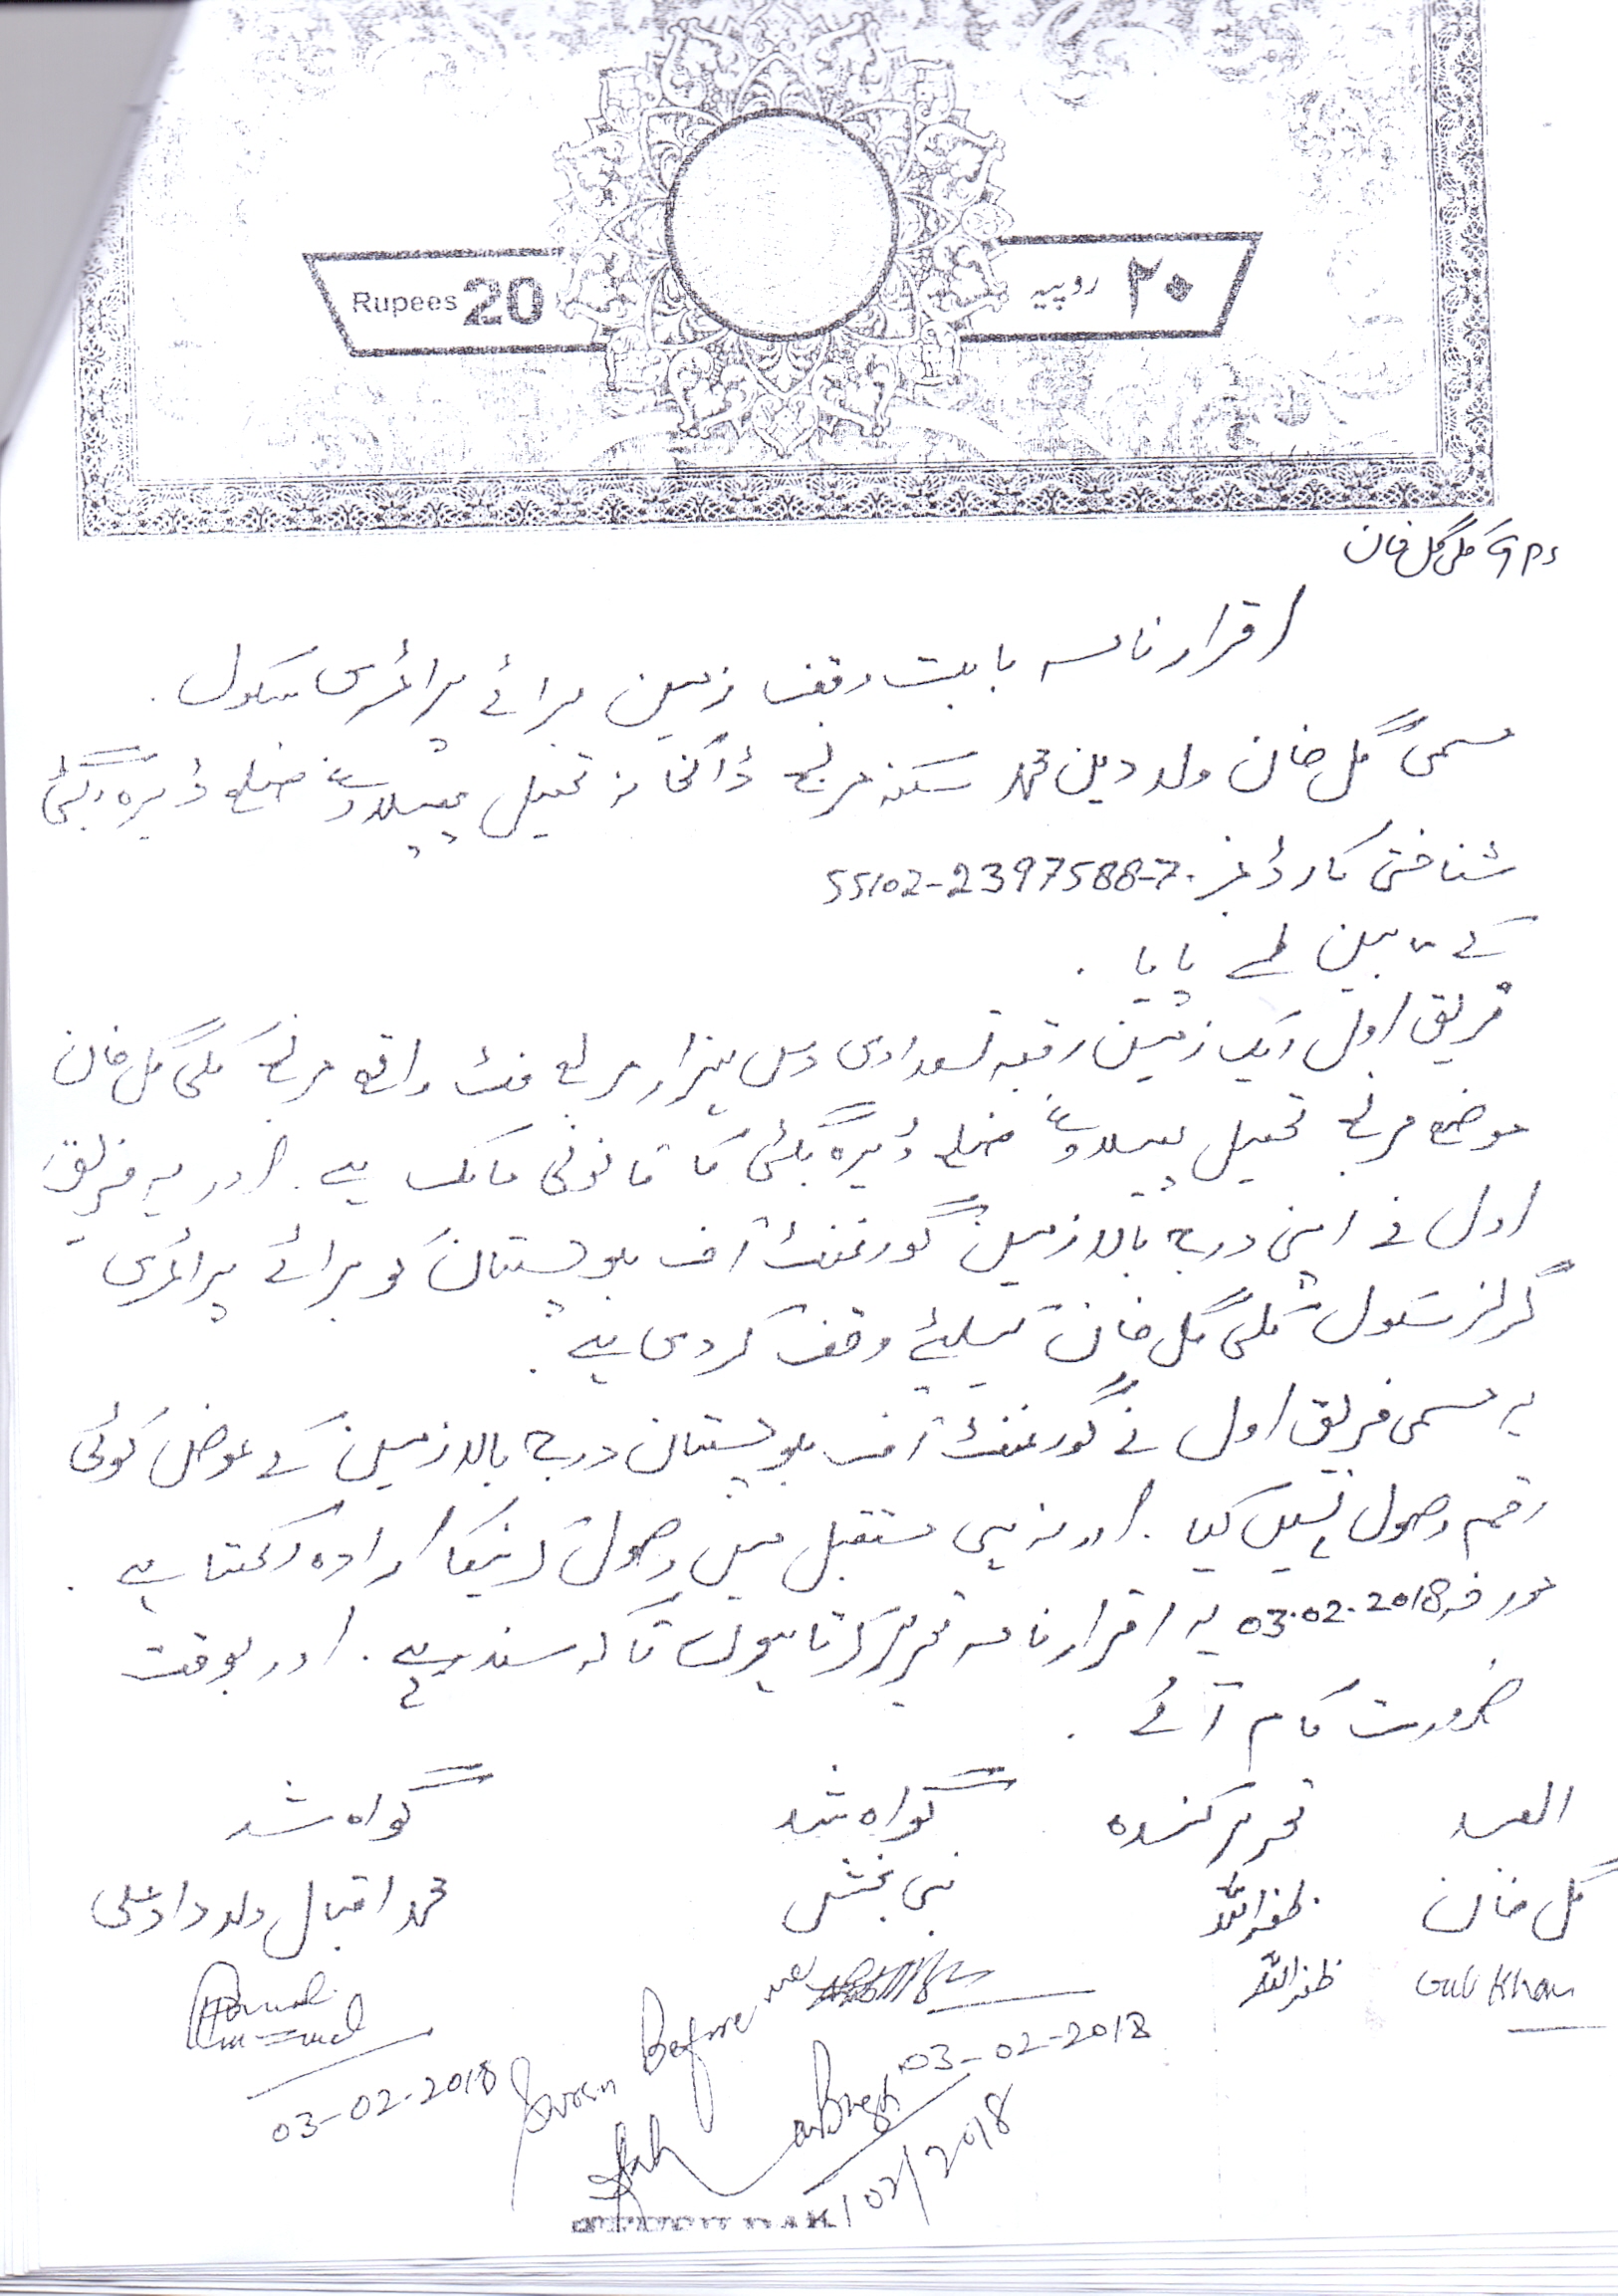 Rupees 20
۲۰ روپیہ
GPS کلی گل خان
اقرار نامہ بابت وقف زمین برائے پرائمری سکول ۔
مسمی گل خان ولد دین محمد سکنہ ڈاکخانہ تحصیل ضلع ڈیرہ بگٹی
شناختی کارڈ نمبر 55102-2397588-7
کے مابین طے پایا ۔
فریق اول ایک زمین رقبہ تعدادی دس ہزار مربع فٹ واقع کلی گل خان
موضع تحصیل ضلع ڈیرہ بگٹی کا قانونی مالک ہے ۔ اور یہ فریق
اول نے اپنی درج بالا زمین گورنمنٹ آف بلوچستان کو برائے پرائمری
گرلز سکول کلی گل خان کیلئے وقف کر دی ہے ۔
یہ مسمی فریق اول نے گورنمنٹ آف بلوچستان درج بالا زمین کے عوض کوئی
رقم وصول نہیں کیا ۔ اور نہ ہی مستقبل میں وصول کرنیکا ارادہ رکھتا ہے ۔
مورخہ 03.02.2018 یہ اقرار نامہ تحریر کرتا ہوں تاکہ سند رہے ۔ اور بوقت
ضرورت کام آئے ۔
العبد تحریر کنندہ گواہ شد گواہ شد
گل خان ظفراللہ نبی بخش محمد اقبال ولد داد علی
Gul Khan ظفراللہ
03-02-2018
03-02-2018
Sworn Before me
/02/2018